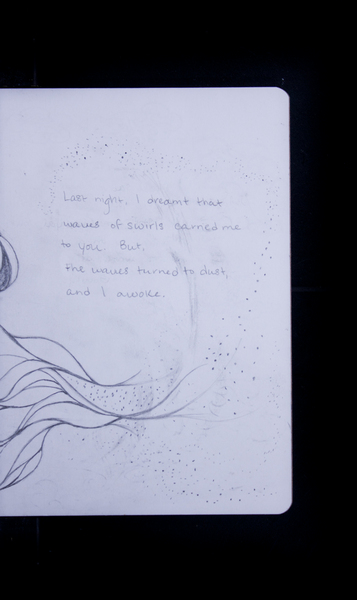 Last night, I dreamt that
waves of swirls carried me
to you. But,
the waves turned to dust,
and I awoke.